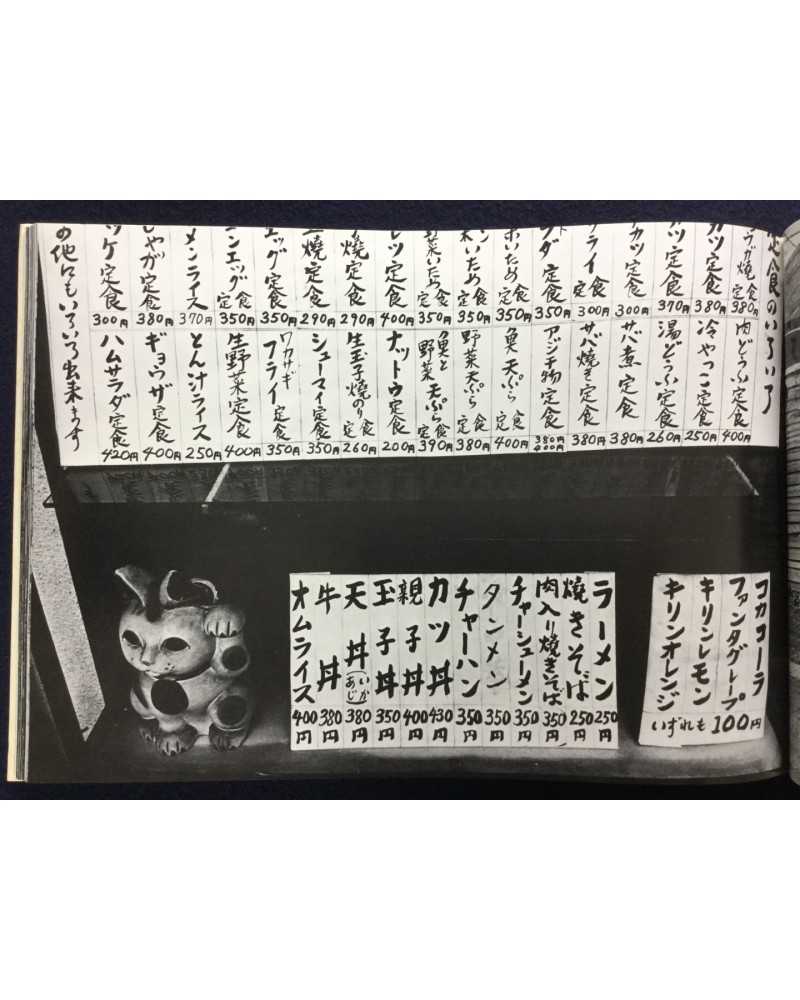 定食のいろいろ
ウガ焼定食 380円
カツ定食 380円
ツ定食 370円
カツ定食 300円
フライ定食 300円
ダ定食 350円
いため定食 350円
いため定食 350円
野菜いため定食 350円
レツ定食 400円
焼定食 290円
焼定食 290円
エッグ定食 350円
ンエッグ定食 350円
メンライス 370円
しゃが定食 380円
ッケ定食 300円
の他にもいろいろ出来ます
肉どうふ定食 400円
冷やっこ定食 250円
湯どうふ定食 260円
サバ煮定食 380円
サバ焼き定食 380円
アジ干物定食 380円 400円
魚天ぷら定食 400円
野菜天ぷら定食 380円
魚と野菜天ぷら定食 390円
ナットウ定食 200円
生玉子焼のり定食 260円
シューマイ定食 350円
ワカサギフライ定食 350円
生野菜定食 400円
とん汁ライス 250円
ギョウザ定食 400円
ハムサラダ定食 420円
コカコーラ
ファンタグレープ
キリンレモン
キリンオレンジ
いずれも100円
ラーメン 250円
焼きそば 250円
肉入り焼きそば 350円
チャーシューメン 350円
タンメン 350円
チャーハン 350円
カツ丼 430円
親子丼 400円
玉子丼 350円
天丼(いかあじ) 380円
牛丼 380円
オムライス 400円